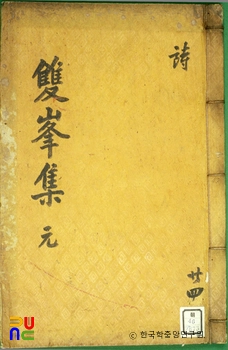 詩
雙峯集 元
廿四
© 한국학중앙연구원